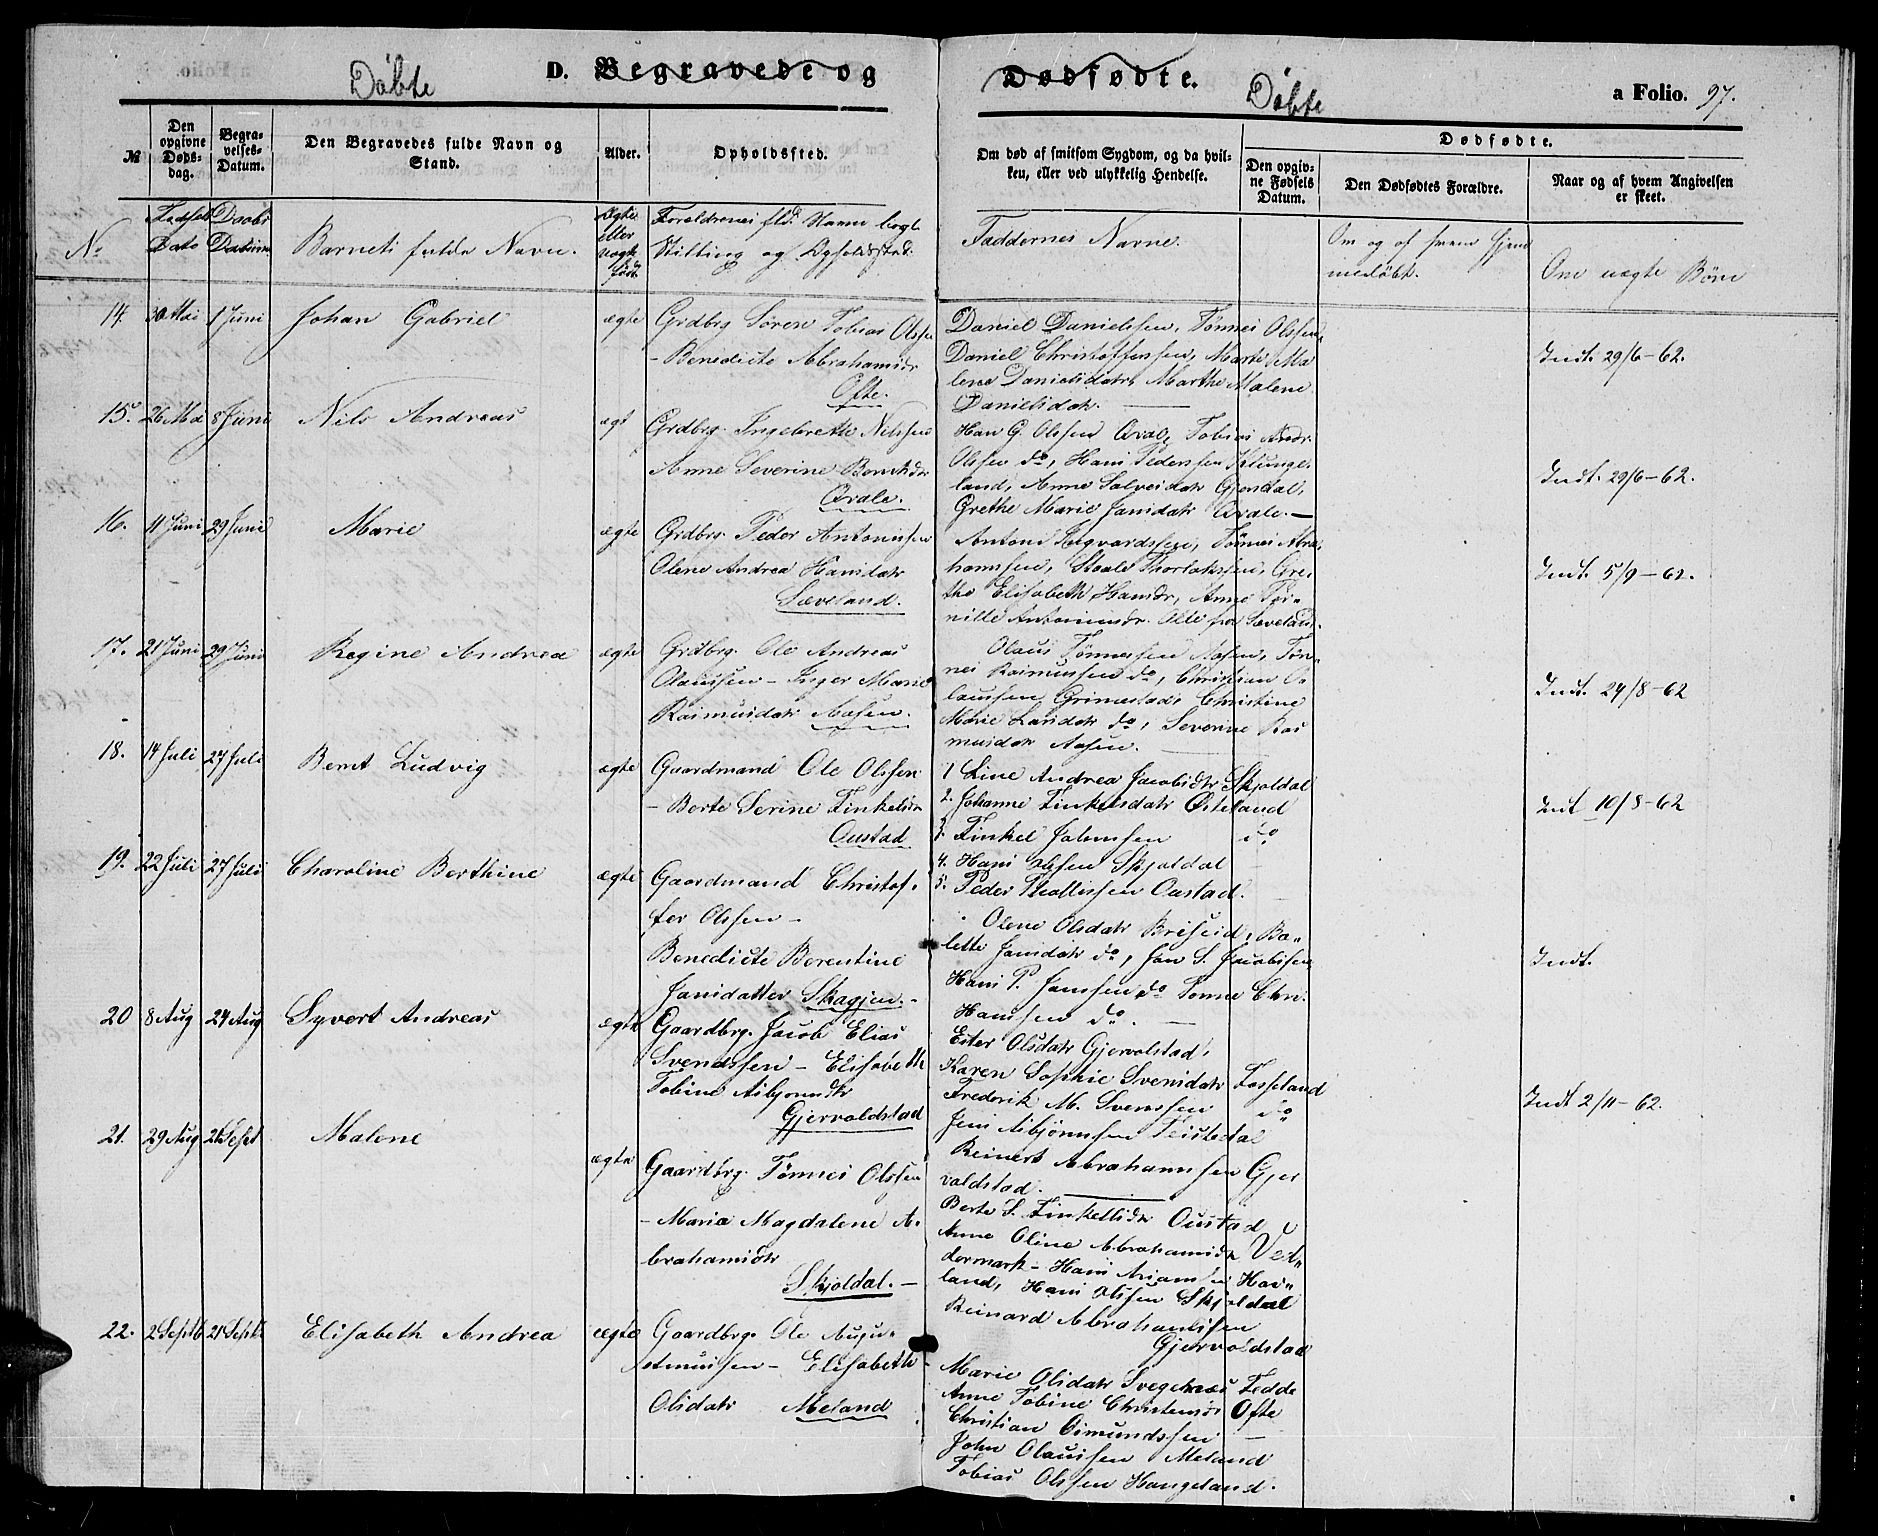 Döbte D. Begravede og Dødfødte. Döbte a Folio. 97.
№ Den opgivne Døds-dag. Begra-velses-Datum. Den Begravedes fulde Navn og Stand. Alder. Opholdssted. Om død af smitsom Sygdom, og da hvil-ken, eller ved ulykkelig Hendelse. Dødfødte.
Den opgiv-ne Fødsels Datum. Den Dødfødtes Forældre. Naar og af hvem Angivelsen er skeet.
No Fødsels Dato Daabs Datum Barnets fulde Navn. Ægte eller uægte født
Foreldrenes fld. Navne
Stilling og Opholdssted.
Faddernes Navne.
Om og af hvem hjem
medöbt.
Om uægte Børn
14. 30 Mai 1 Juni Johan Gabriel ægte
Grdbrg Søren Tobias Olssen
- Benedicte Abrahamsdr
Ofte.
Daniel Danielssen, Tönnes Olssen,
Daniel Christoffersen, Marte Ma
lene Danielsdatr, Marthe Malene
Danielsdatr.
Indt. 29/6-62.
15. 26 Mai 8 Juni Nils Andreas ægt
Grdbrg. Ingebreth Nilssen
Anne Severine Berntsdr
Qvale.
Han G. Olssen Qvale, Tobias Andr.
Olssen do, Hans Pederssen Klunge-
land, Anne Salvesdatr Gjerdal,
Grethe Marie Jansdatr Qvale.
Indt. 29/6-62.
16. 11 Juni 29 Juni Marie ægte
Grdbrg. Peder Antonissen
Olene Andrea Hansdatr
Sæveland.
Antoni Sigvardssen, Tönnes Abra-
hamssen, Staale Thorlakssen, Gre-
the Elisabeth Hansdr, Anne Per-
nille Antonisdr. Alle fra Sæveland.
Indt. 5/9-62.
17. 21 Juni 29 Juni Regine Andrea ægte
Grdbrg. Ole Andreas
Olaussen - Inger Marie
Rasmusdatr Aasen.
Olaus Tönnessen Aasen, Tön-
nes Rasmussen do, Christian O-
laussen Grimestad, Christine
Marie Larsdatr do, Severine Ras
musdatr Aasen.
Indt. 24/8-62
18. 14 Juli 27 Juli Bernt Ludvig ægte
Gaardmand Ole Olssen
- Berte Serine Tinkelsdr
Oustad
1 Line Andrea Jacobsdtr Skjoldal
2. Johanne Tinkelsdatr Østeland
3. Tinkel Salmssen do
4. Hans Olssen Skjoldal
5. Peder Thollissen Oustad.
Indt 10/8-62
19. 22 Juli 27 Juli Charoline Berthine ægte
Gaardmand Christof-
fer Olssen -
Benedicte Berentine
Jansdatter Skagjen.
Olene Olsdatr Briseid, Bo-
lette Jansdatr do, Jan S. Jacobssen,
Hans P. Janssen do Tönne Chr.
Hanssen do.
Indt.
20 8 Aug 24 Aug Syvert Andreas ægte
Gaardbrg. Jacob Elias
Svendssen - Elisabeth
Tobine Asbjornsdtr
Gjervoldstad
Ester Olsdatr Gjervolstad,
Karen Sophie Svensdatr Fosseland
Frederik M. Svenssen do
Jens Asbjönnssen Teistedal
Reinert Abrahamssen Gjer
valdstad.
Indt 2/11-62.
21. 29 Aug 21 Sept Malene ægte
Gaardbrg. Tönnes Olssen
- Maria Magdalene A-
brahamsdtr
Skjoldal. -
Berte S. Tinkellsdtr Oustad
Anne Oline Abrahamsdtr Ved-
dermark - Hans Arianssen Hav-
land, Hans Olssen Skjoldal
Reinard Abrahamssen
Gjervoldstad
22. 2 Septb 21 Sept. Elisabeth Andrea ægte
Gaardbrg. Ole Augu-
stinussen - Elisabeth
Olsdatr Meland
Marie Olsdatr Svegenæs Fedde
Anne Tobine Christensdr Ofte
Christian Osmundssen -
John Olaussen Meland
Tobias Olssen Haugeland.